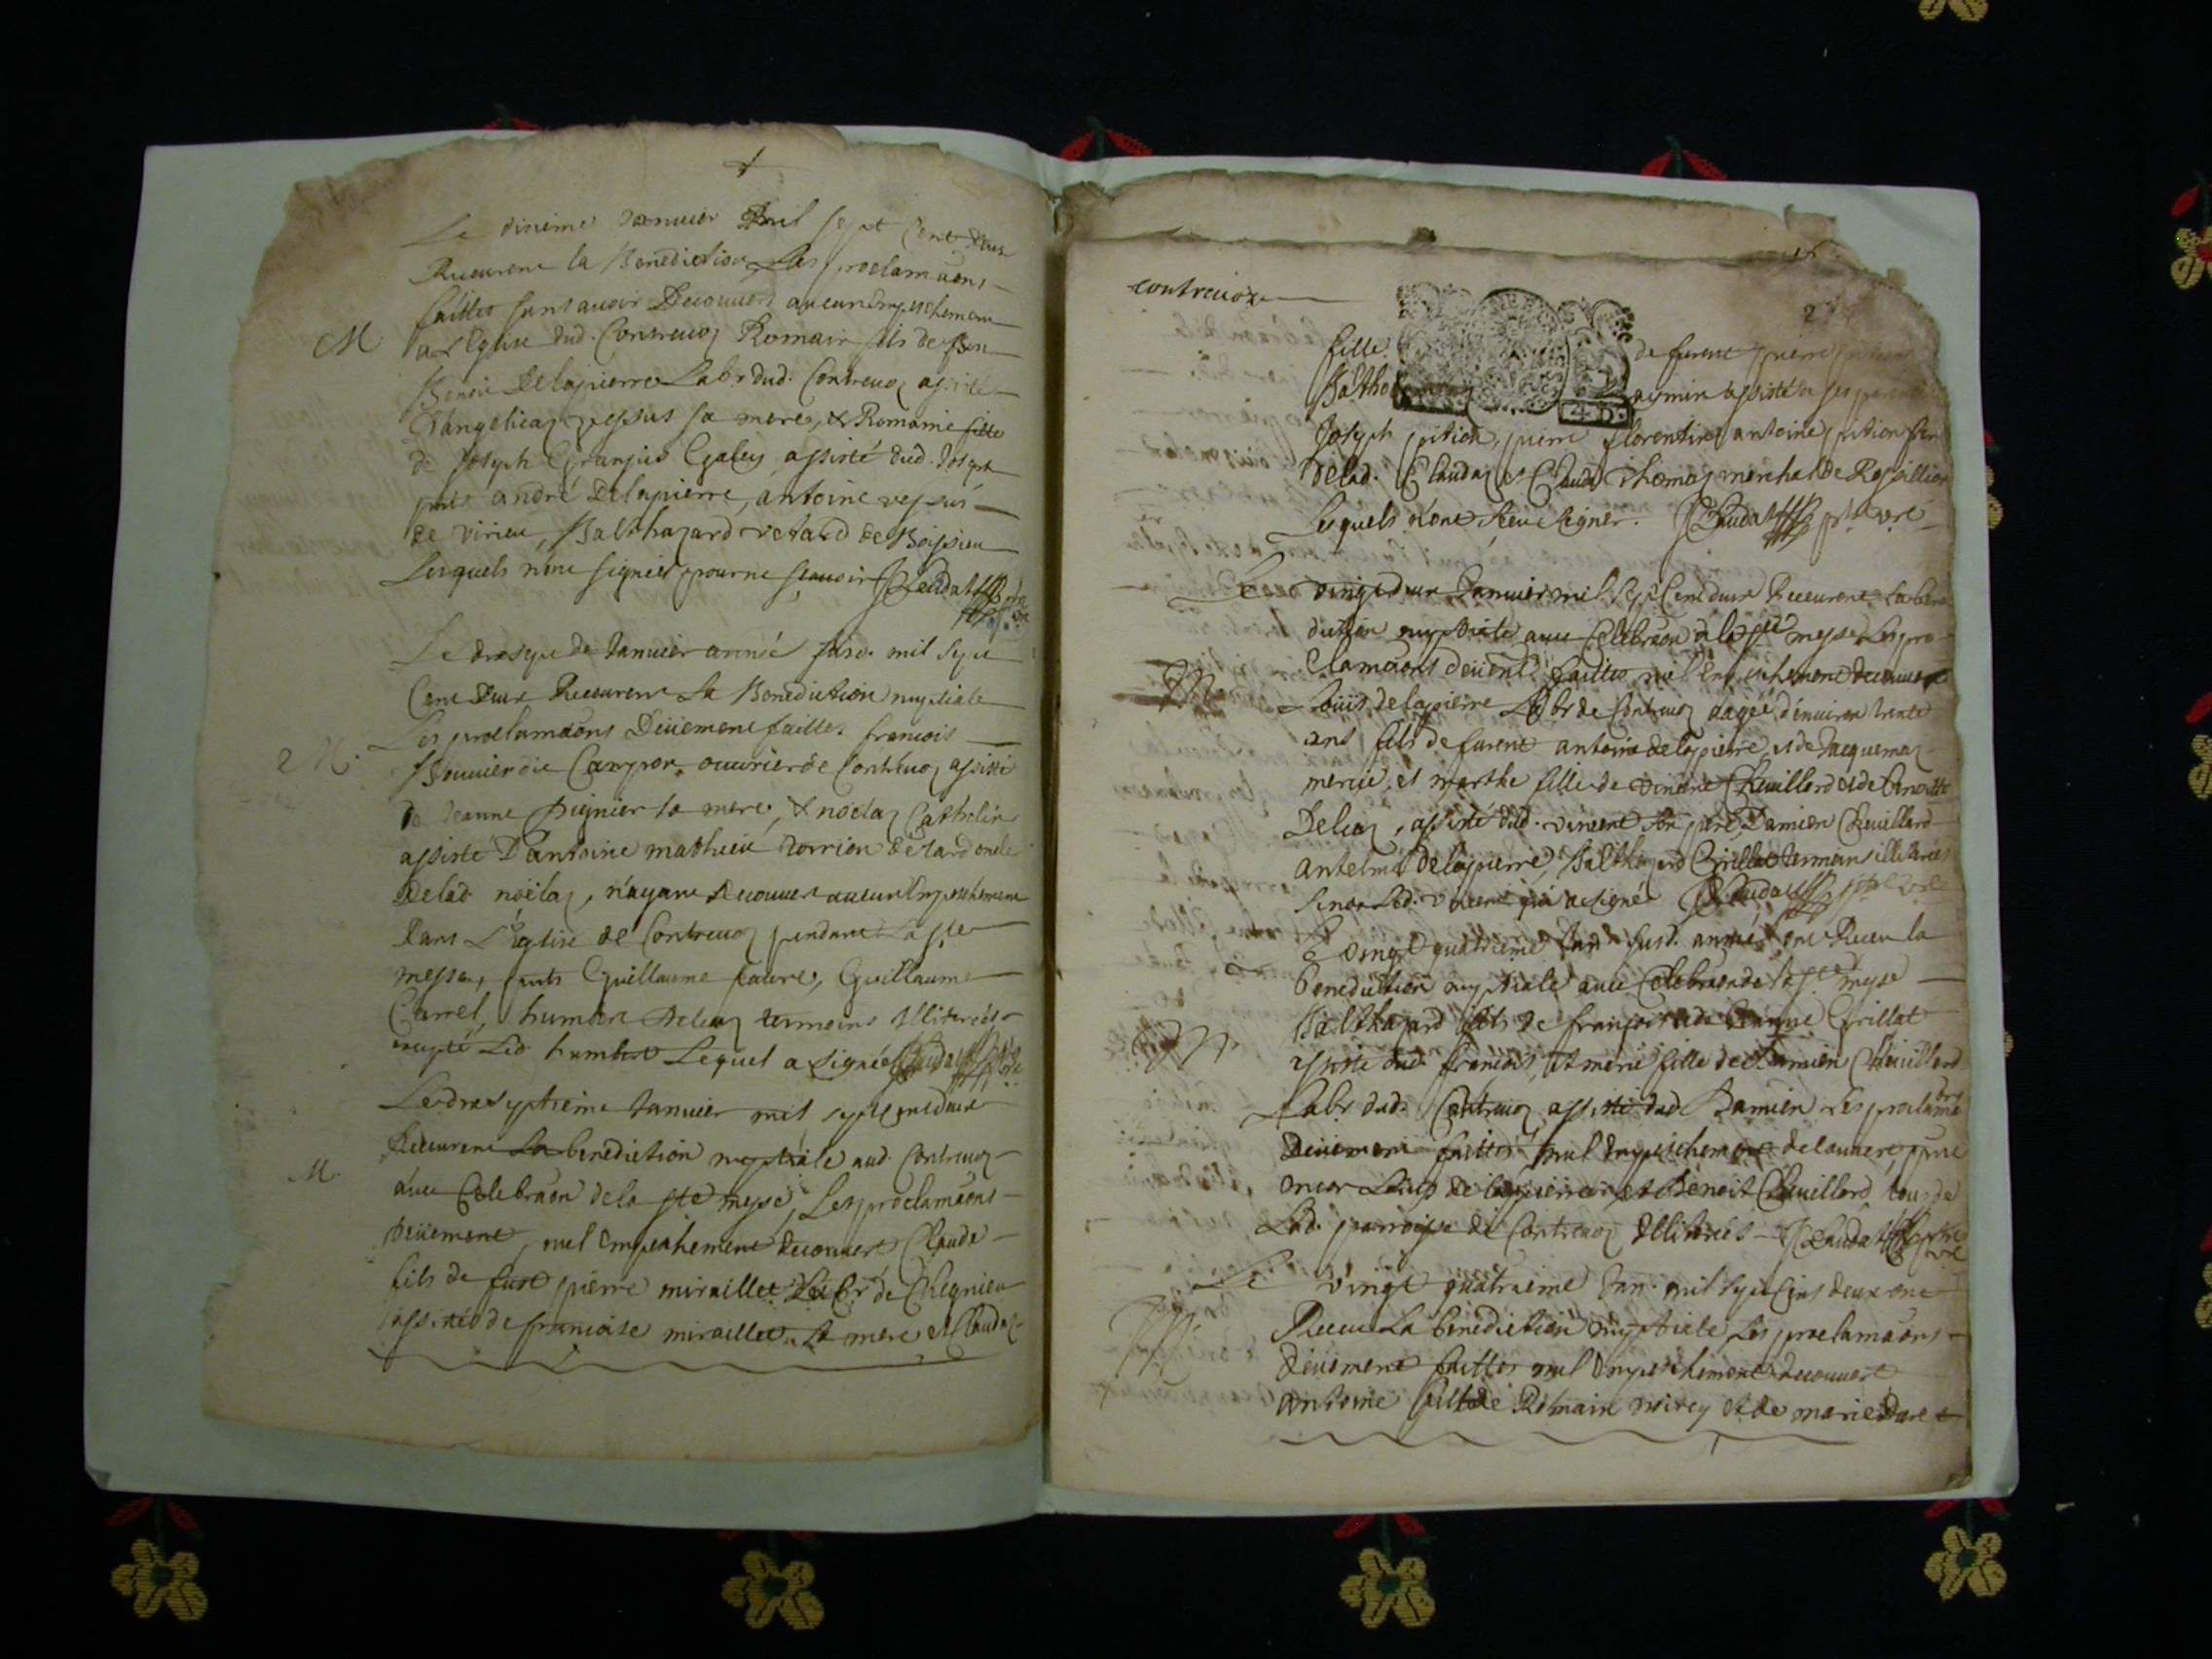 Le dixieme Januier mil sept cent deux
Receurent la Benediction Les proclamaons
faittes sans auoir Decouuert aucun Empeschement
M
a l'Eglise dud. Contreuoz Romain fils de feu
Benoit Delapierre Labr dud. Contreuoz assisté
D'angelicaz vepsus sa mere, & Romaine fille
de Joseph Granjus Galey assisté dud. Joseph
pnts andré Delapierre, antoine vepsus
de virieu, Balthazard vetard de Boissieu
Lesquels n'ont signés pour ne sçauoir
Le dixsept de Januier année susd. mil sept
Cent Deux Receurent La Benediction nuptiale
Les proclamaons Deüement faittes francois
2 M.
ouurier de Contreuoz assisté
de Jeanne Pignier sa mere, & noelaz Cathelin
assisté D'antoine mathieu
Delad. noëlaz, n'ayant Decouuert aucun Empeschement
Dans L'Eglise de Contreuoz pendant La ste
messe, pnts Guillaume faure, Guillaume
Carrel, humbert Deleaz temoins Illiterés
excepté Led. humbert Lequel a signé
Le dixseptieme Januier mil sept cent deux
Receurent La benediction nuptiale aud. Contreuoz
M
auec Celebraon de la ste messe, Les proclamaons
Deüement, nul Empechement decouuert Claude
fils de fut pierre miraillet Labr de Chegnieu
assisté de francoise miraillet sa mere et Claudaz
contreuoz
2
fille de furent pierre pition
4 D.
Joseph pition, pierre florentin, antoine pition
Delad. Claudaz et Claude Thomaz merchat de Rossillion
Lesquels n'ont sceu signer.
Le vingtdeux Januier mil sept Cent deux Receurent La bene
diction nuptiale auec Celebraon de la ste messe Les pro
clamaons deüent faittes nul Empeschement decouuert
M
Loüis delapierre Labr de Contreuoz aagé d'enuiron trente
ans fils de furent antoine delapierre et de Jacquemaz
mercié, et marthe fille de vincent Cheuillard et de Benoitte
Deleaz, assisté dud. vincent son pere, Damien Cheuillard
antelme delapierre, Balthazard Grillet temoins illiterés
sinon Led. vincent qui a signé
Le vingt quatrieme Jan. susd. année ont Receu la
benediction nuptiale auec Celebraon de la ste messe
M
Balthazard fils de françois et de Jeanne Grillat
assisté dud. francois, et marie fille de Damien Cheuillard
Labr dud. Contreuoz assisté dud. Damien Les proclama
Deüement faittes nul Empeschement decouuert, pnts
encor Loüis delapierre et Benoit Cheuillard, tous de
Lad. parroisse de Contreuoz Illiterés
Le vingt quatrieme Jan. mil sept cens deux ont
Receu La benediction nuptiale Les proclamaons
Deüement faittes nul Empeschement decouuert
antoine fils de Romain noirey et de marie